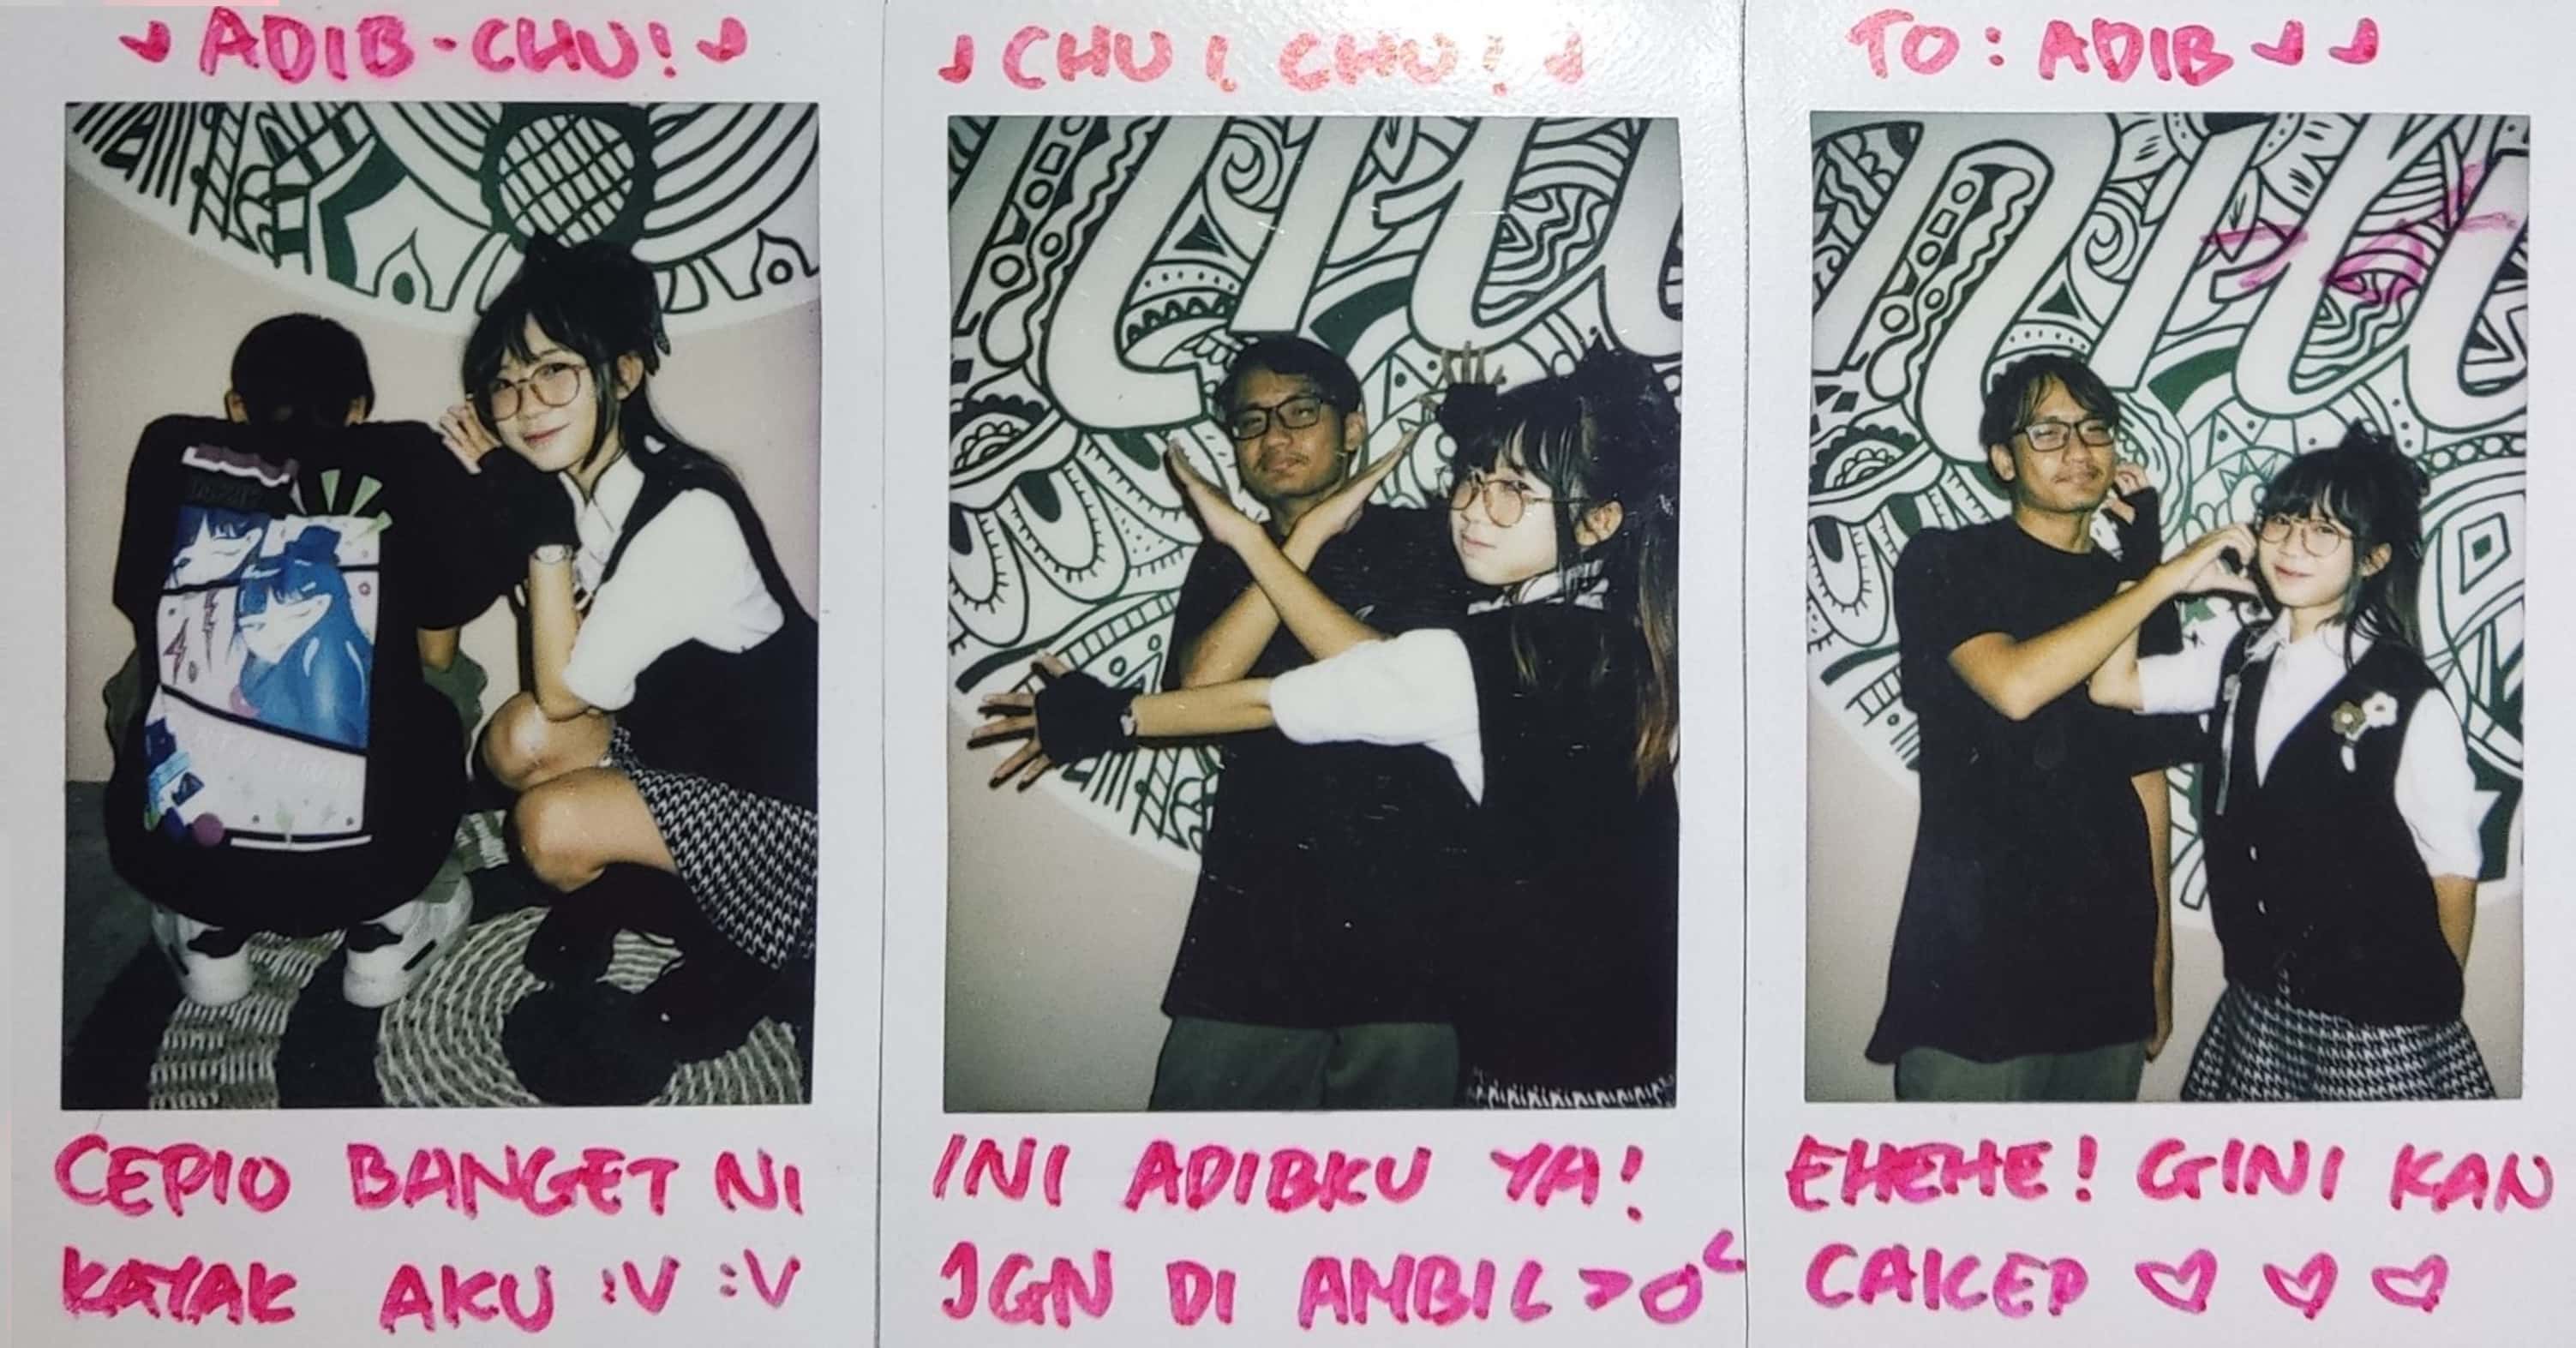 ADIB-CHU!
CEPIO BANGET NI
KAYAK AKU :V :V
CHU! CHU!
INI ADIBKU YA!
JGN DI AMBIL >o<
TO: ADIB
EHEHE! GINI KAN
CAKEP ♡ ♡ ♡